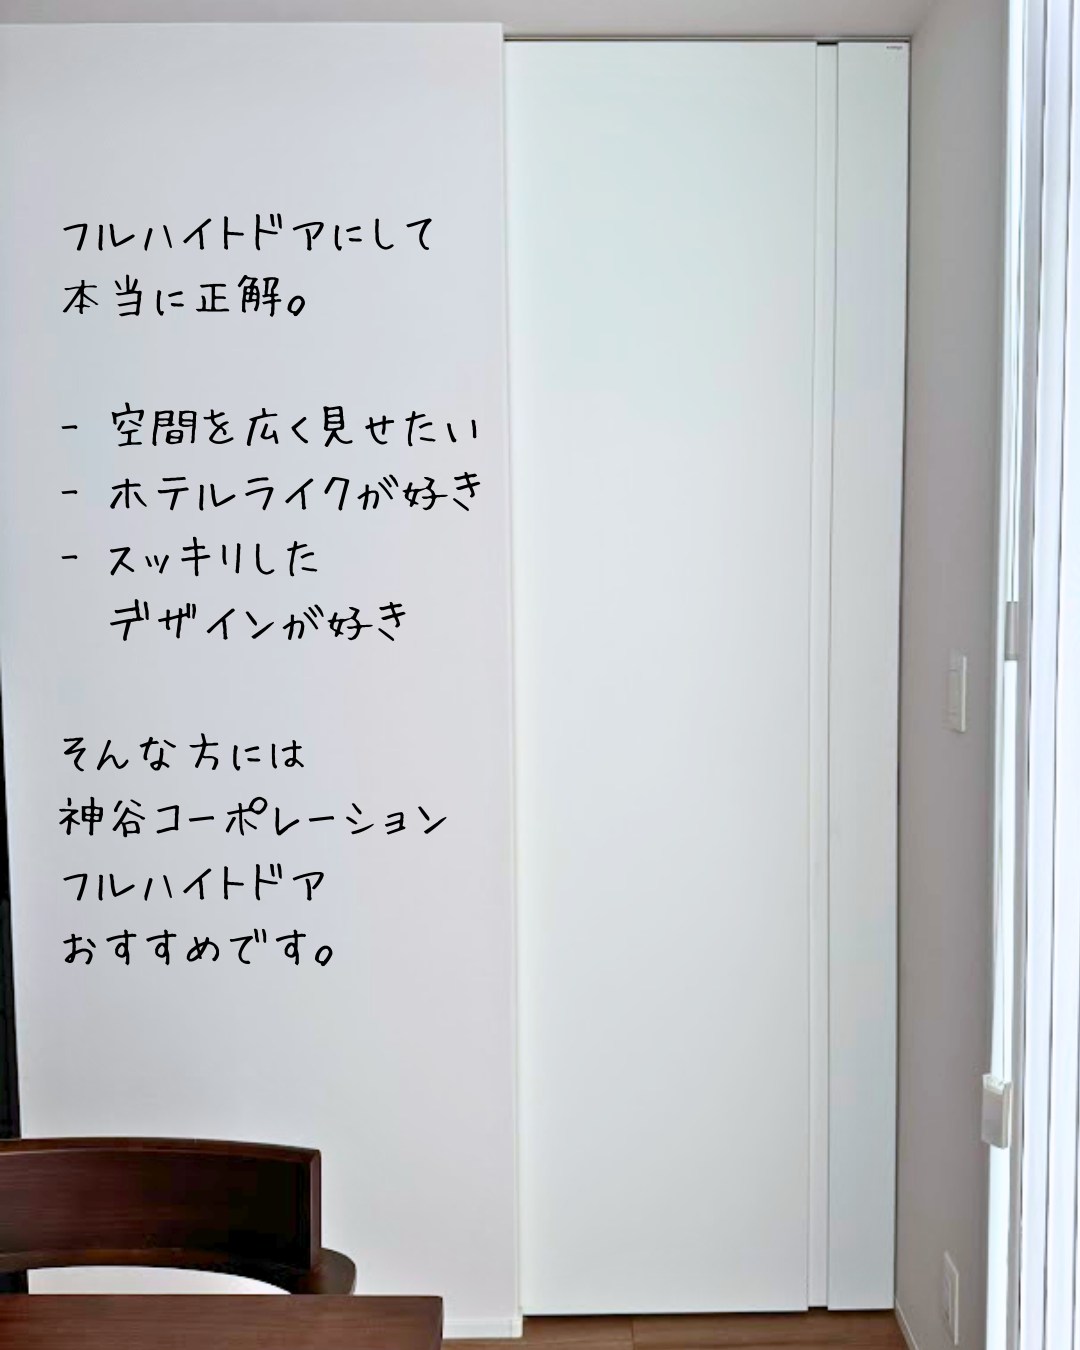 フルハイトドアにして
本当に正解。
- 空間を広く見せたい
- ホテルライクが好き
- スッキリした
デザインが好き
そんな方には
神谷コーポレーション
フルハイトドア
おすすめです。